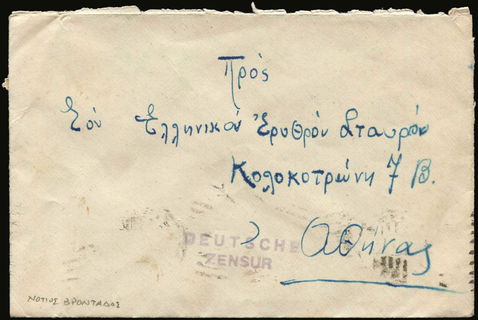 Πρός
Τόν Ἑλληνικόν Ἐρυθρόν Σταυρόν
Κολοκοτρώνη 7 Β.
Ἀθήνας
DEUTSCHE
ZENSUR
ΝΟΤΙΟΣ ΒΡΟΝΤΑΔΟΣ